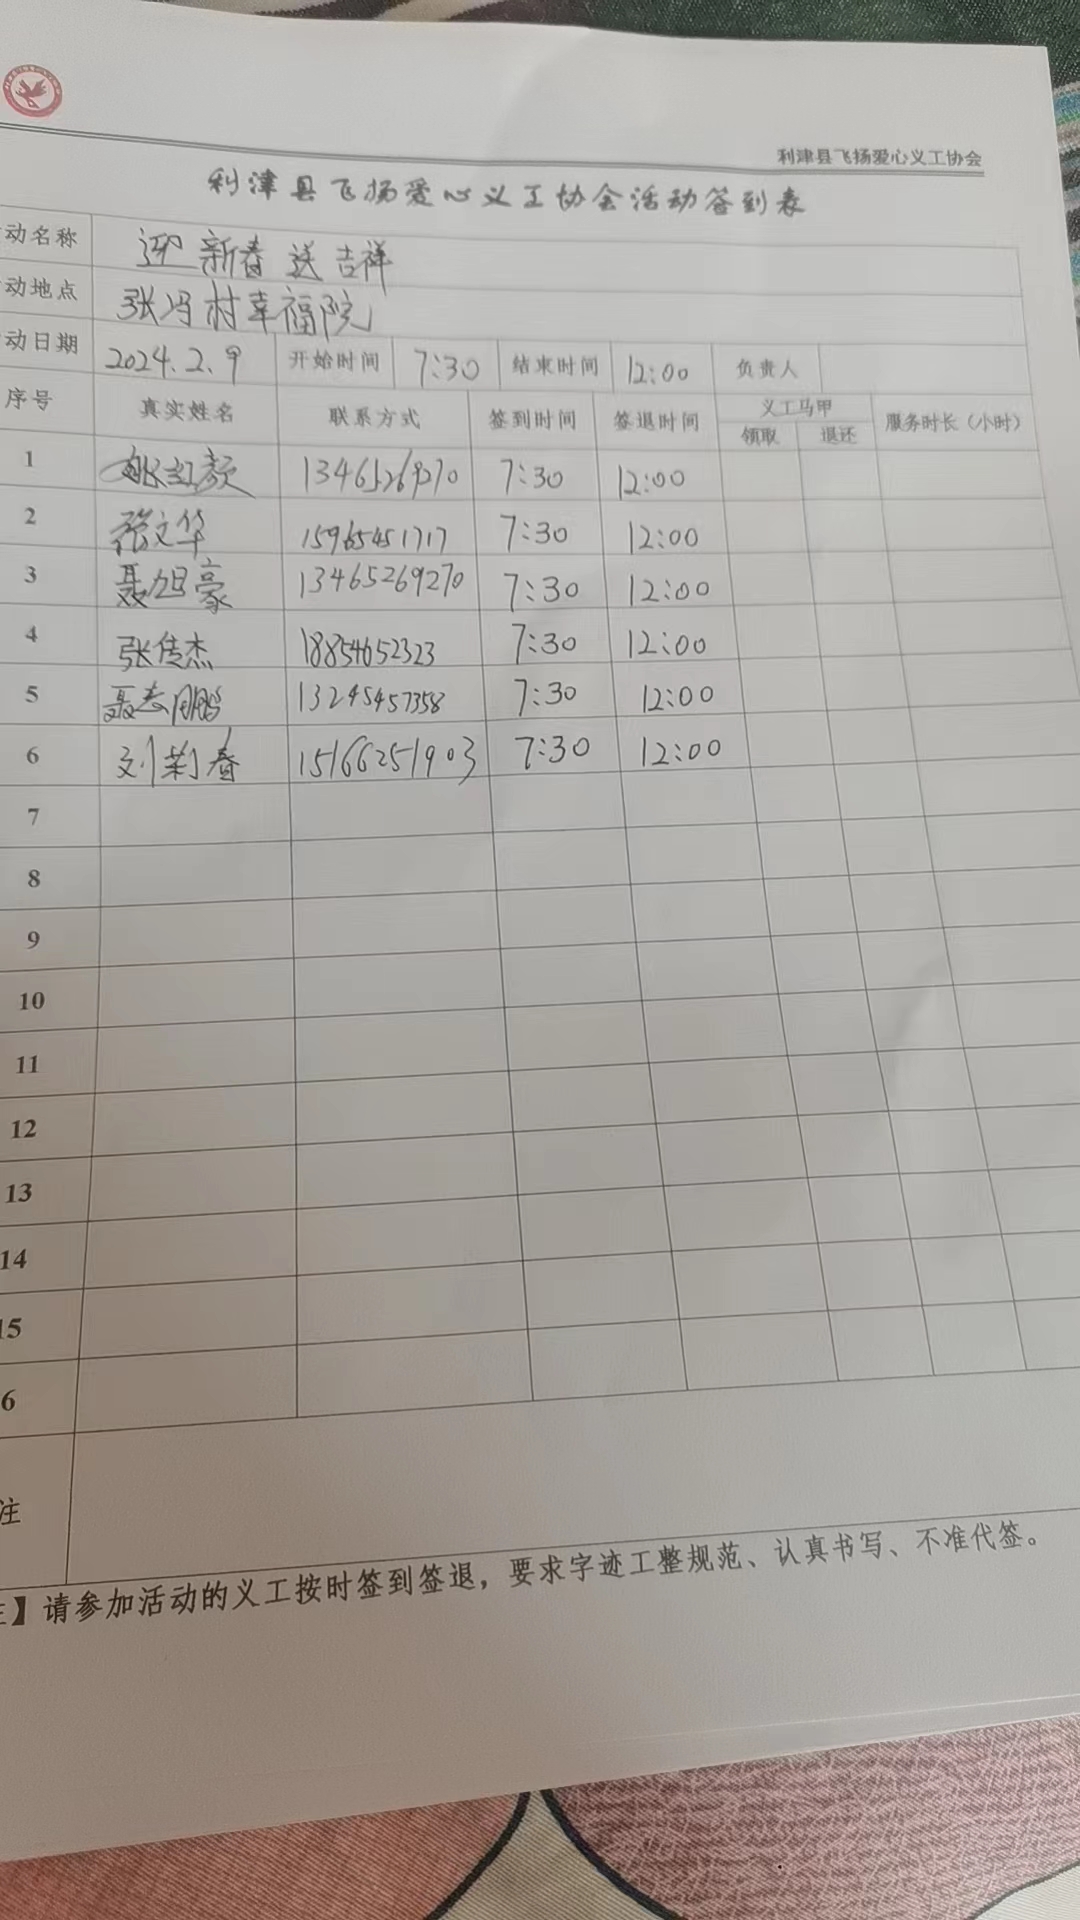 利津县飞扬爱心义工协会
利津县飞扬爱心义工协会活动签到表
动名称 迎新春送吉祥
动地点 张冯村幸福院
动日期 2024.2.9 开始时间 7:30 结束时间 12:00 负责人
序号 真实姓名 联系方式 签到时间 签退时间 义工马甲 服务时长（小时）
领取 退还
1 13465269270 7:30 12:00
2 张文华 15965451717 7:30 12:00
3 聂旭豪 13465269270 7:30 12:00
4 张传杰 18854652323 7:30 12:00
5 聂志鹏 13245457358 7:30 12:00
6 刘荆春 15166251903 7:30 12:00
7
8
9
10
11
12
13
14
15
6
注
注】请参加活动的义工按时签到签退，要求字迹工整规范、认真书写、不准代签。